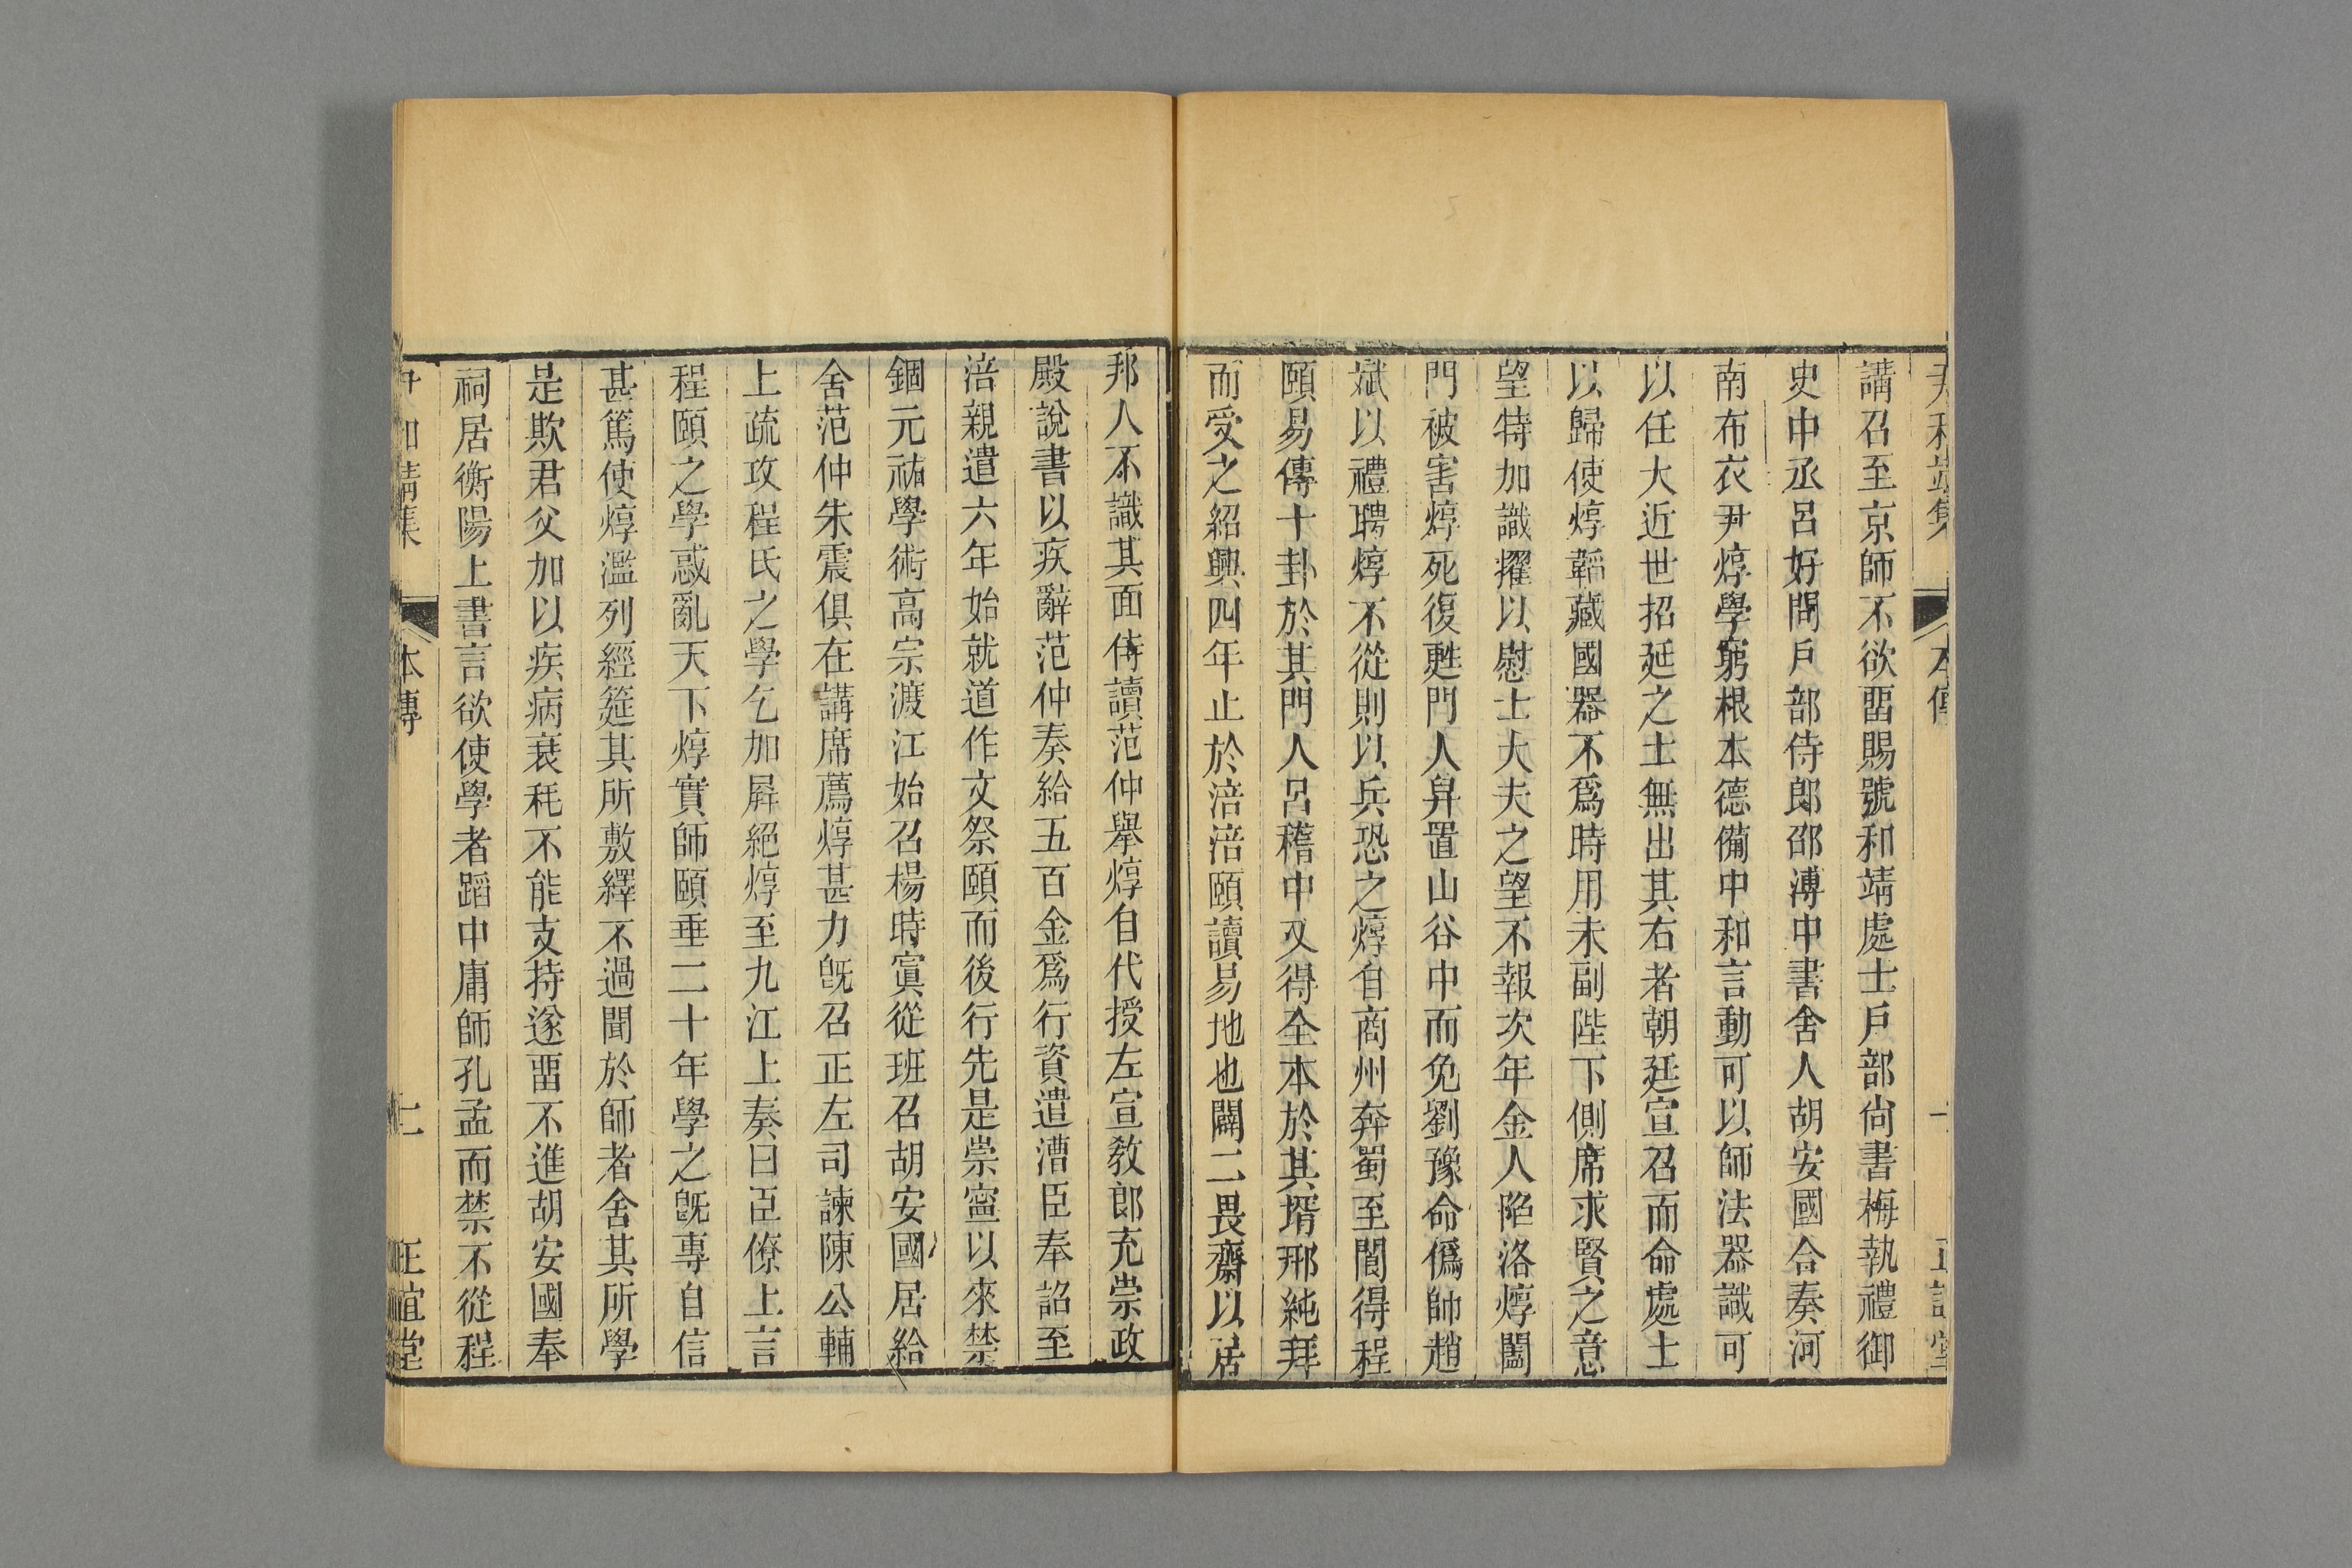 尹和靖集 本傳 一 正誼堂
講召至京師不欲畱賜號和靖處士戶部尙書梅執禮御
史中丞呂好問戶部侍郎邵溥中書舍人胡安國合奏河
南布衣尹焞學窮根本德備中和言動可以師法器識可
以任大近世招延之士無出其右者朝廷宣召而命處士
以歸使焞韜藏國器不爲時用未副陛下側席求賢之意
望特加識擢以慰士大夫之望不報次年金人陷洛焞闔
門被害焞死復甦門人舁置山谷中而免劉豫命僞帥趙
斌以禮聘焞不從則以兵恐之焞自商州奔蜀至閬得程
頤易傳十卦於其門人呂稽中又得全本於其壻邢純拜
而受之紹興四年止於涪涪頤讀易地也闢三畏齋以居
邦人不識其面侍讀范仲舉焞自代授左宣敎郎充崇政
殿說書以疾辭范仲奏給五百金爲行資遣漕臣奉詔至
涪親遣六年始就道作文祭頤而後行先是崇寧以來禁
錮元祐學術高宗渡江始召楊時寘從班召胡安國居給
舍范仲朱震俱在講席薦焞甚力旣召正左司諫陳公輔
上疏攻程氏之學乞加屛絕焞至九江上奏曰臣僚上言
程頤之學惑亂天下焞實師頤垂二十年學之旣專自信
甚篤使焞濫列經筵其所敷繹不過聞於師者舍其所學
是欺君父加以疾病衰秏不能支持遂畱不進胡安國奉
祠居衡陽上書言欲使學者蹈中庸師孔孟而禁不從程
尹和靖集 本傳 二 正誼堂